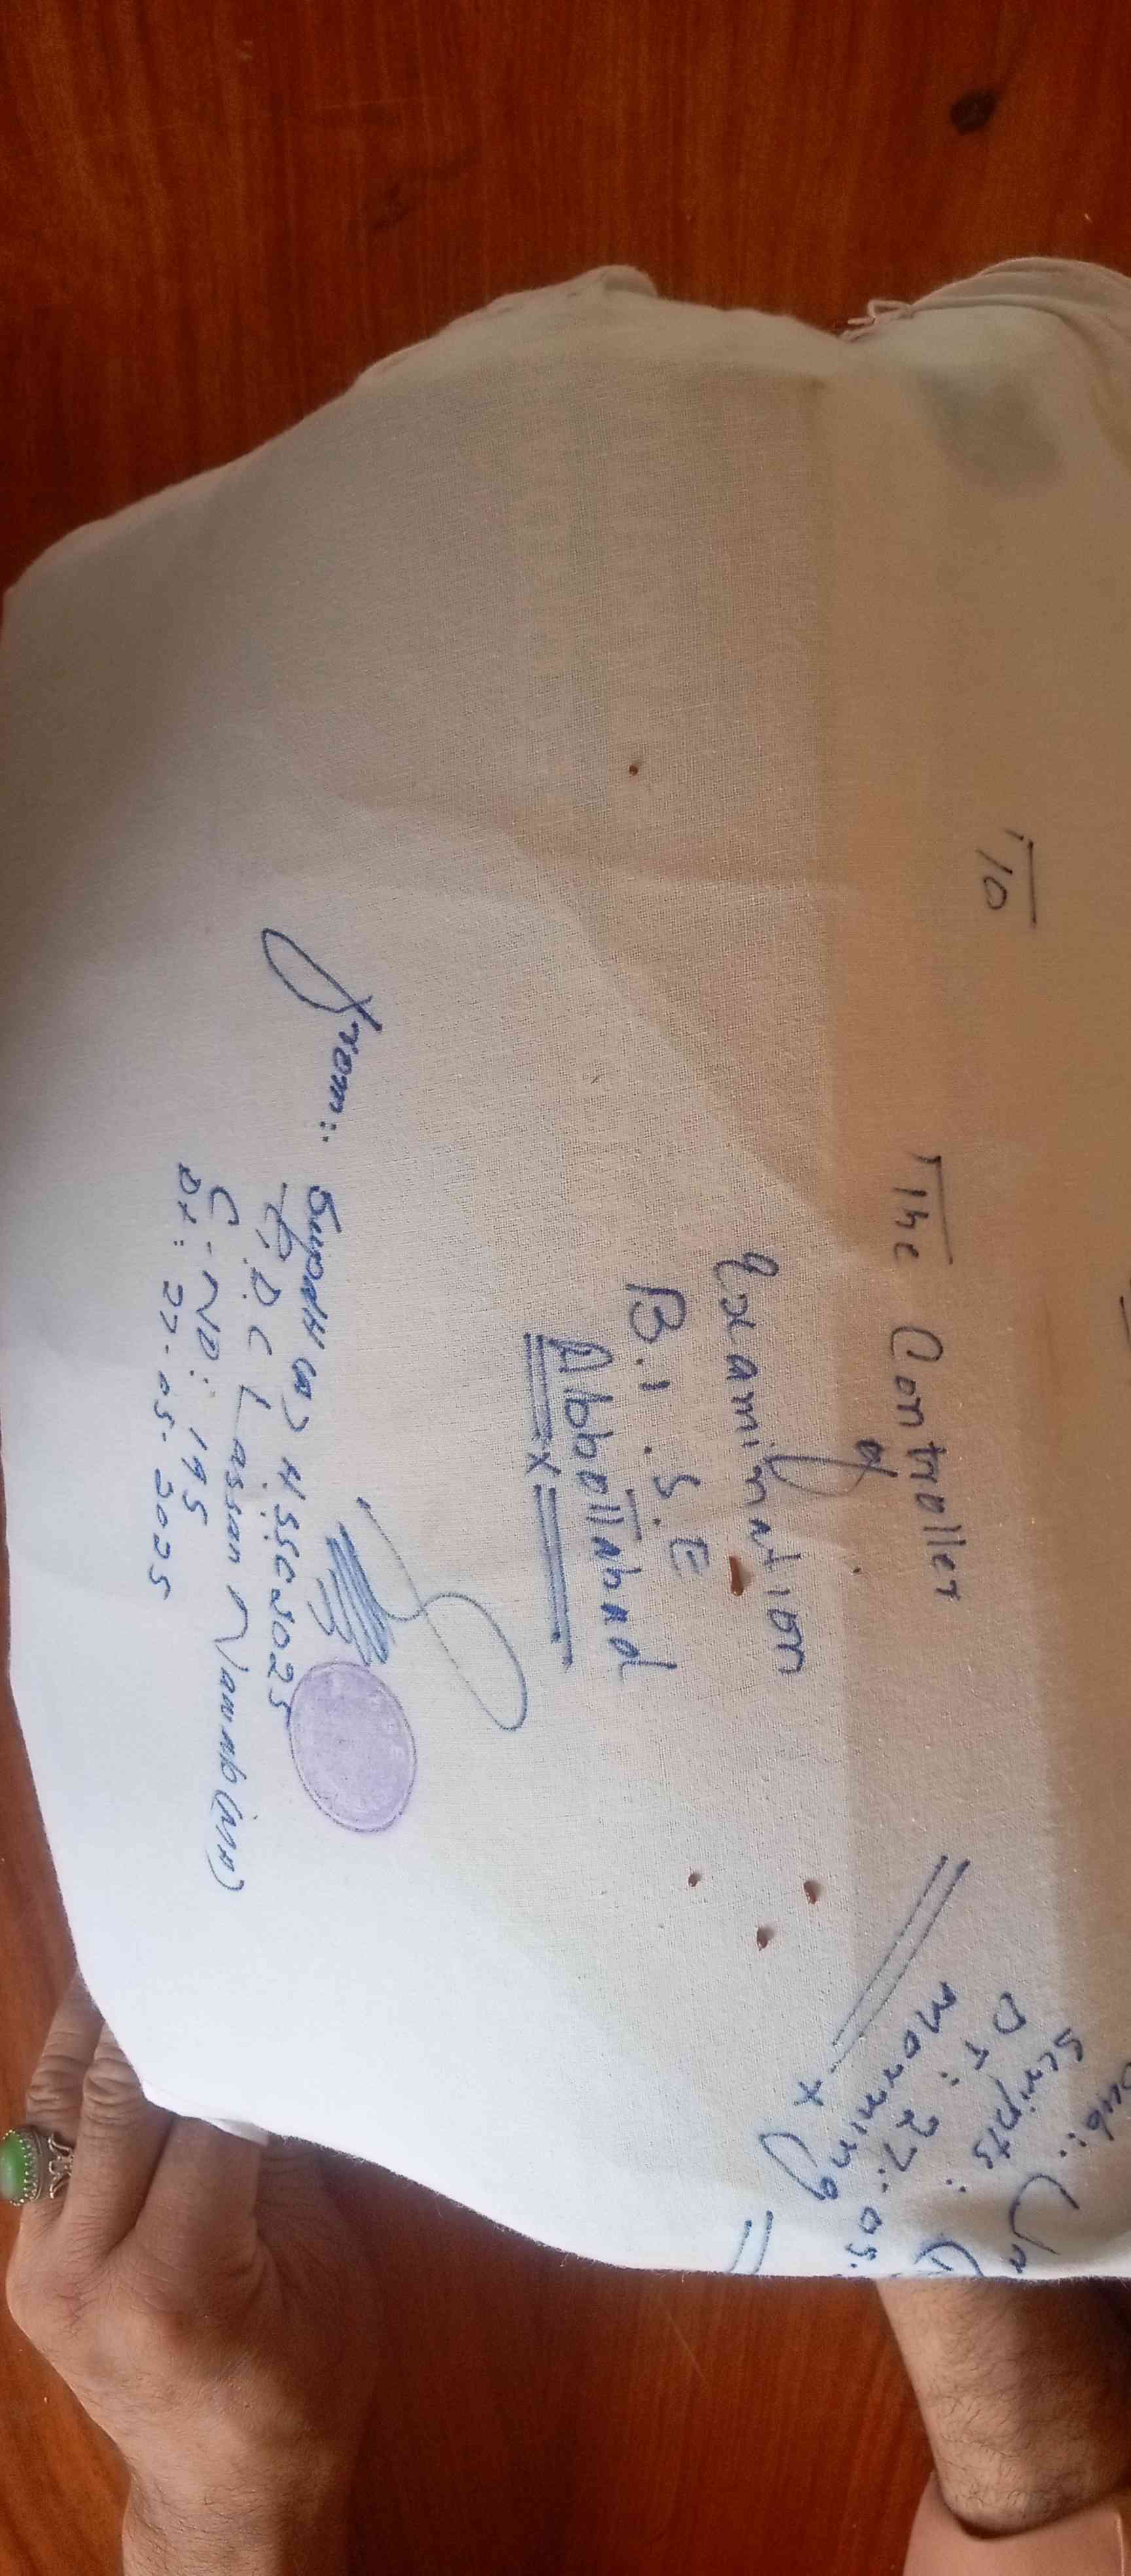 To
The Controller
of
Examination
B.I.S.E
Abbottabad
x
From:: Supdtt (a) HSSC 2025
G.D.C Lassan Nawab (MA)
C-No: 195
Dt: 27-05-2025
Sub::
Scripts:
Dt: 27:05:
Morning
x